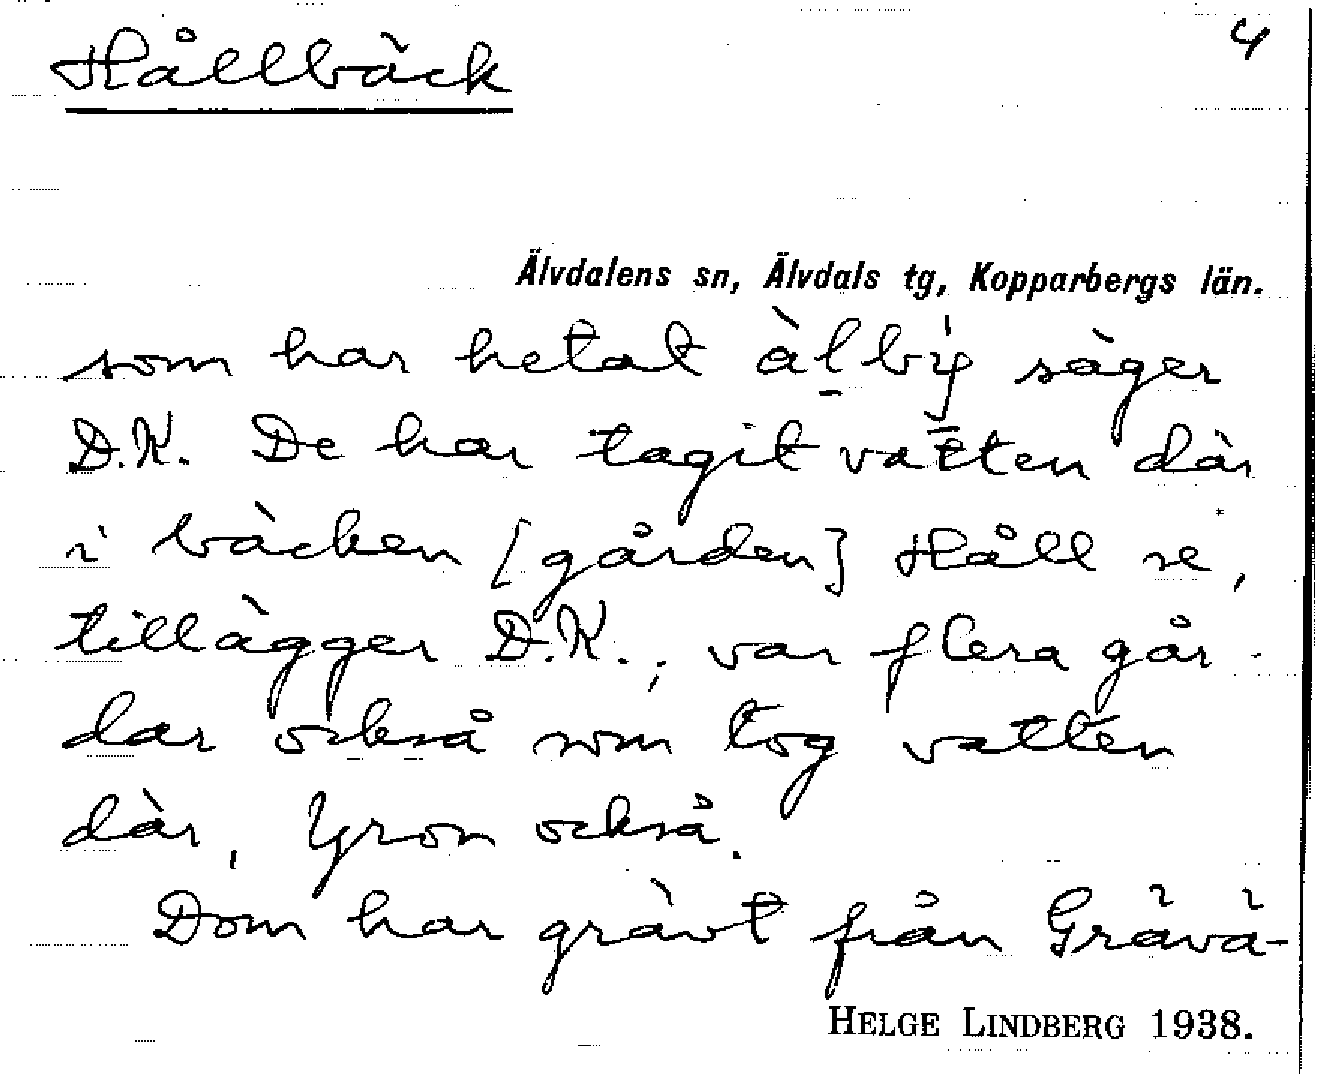 Hållbäck
4
Älvdalens sn, Älvdals tg, Kopparbergs län.
som har hetat säger
D.K. De har tagit vatten där
i bäcken [gården] Håll se,
tillägger D.K., var flera går-
dar också som tog vatten
där, Yron också.
Dom har grävt från Grävä-
HELGE LINDBERG 1938.